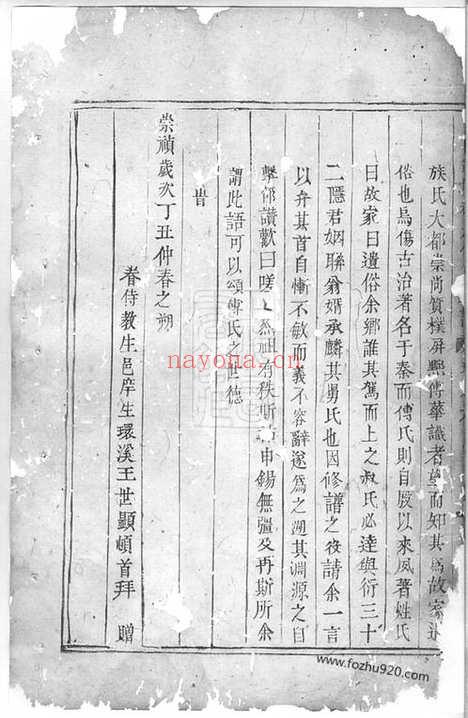 族氏大都崇尚質樸屏黜浮華識者望而知其為故家遺
俗也烏傷古治著名于秦而傅氏則自殷以來夙著姓氏
曰故家曰遺俗余鄉誰其駕而上之叔氏必達與衍三十
二隱君姻聯翁婿承麟其男氏也因修譜之役請余一言
以弁其首自慚不敏而義不容辭遂為之遡其淵源之自
擊節讚歎曰嗟嗟烈祖有秩斯祜申錫無疆及再斯所余
謂此語可以頌傅氏之世德
旹
崇禎歲次丁丑仲春之朔
眷侍教生邑庠生環溪王世顯頓首拜 贈
nayona.cn
www.fozhu920.com